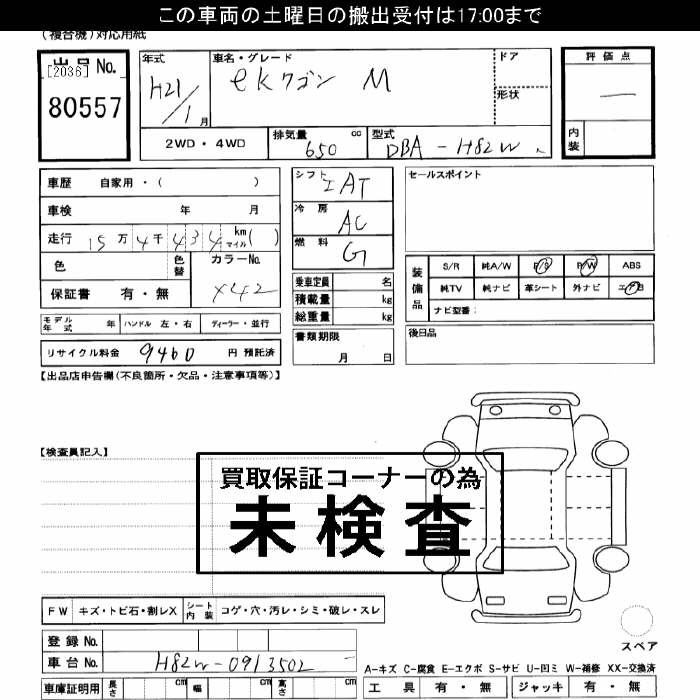 この車両の土曜日の搬出受付は17:00まで
(複合機)対応用紙
出品 No.
[2036]
80557
年式
H21/1月
車名・グレード
ekワゴン M
ドア
形状
評価点
—
内装
2WD・4WD
排気量 650 cc
型式 DBA-H82W
車歴 自家用・( )
車検 年 月
走行 15万4千434 km マイル( )
色 色替 カラーNo. X42
保証書 有・無
モデル年式 年 ハンドル 左・右 ディーラー・並行
リサイクル料金 9460 円 預託済
シフト IAT
冷房 AC
燃料 G
乗車定員 名
積載量 kg
総重量 kg
書類期限 月 日
セールスポイント
装備品
S/R 純A/W P/S P/W ABS
純TV 純ナビ 革シート 外ナビ エアB
ナビ型番:
後日品
【出品店申告欄(不良箇所・欠品・注意事項等)】
【検査員記入】
買取保証コーナーの為
未検査
FW キズ・トビ石・割レX シート内装 コゲ・穴・汚レ・シミ・破レ・スレ
登録 No.
車台 No. H82W-0913502
車庫証明用 長さ cm 幅 cm 高さ cm
スペア
A-キズ C-腐食 E-エクボ S-サビ U-凹ミ W-補修 XX-交換済
工具 有・無 ジャッキ 有・無